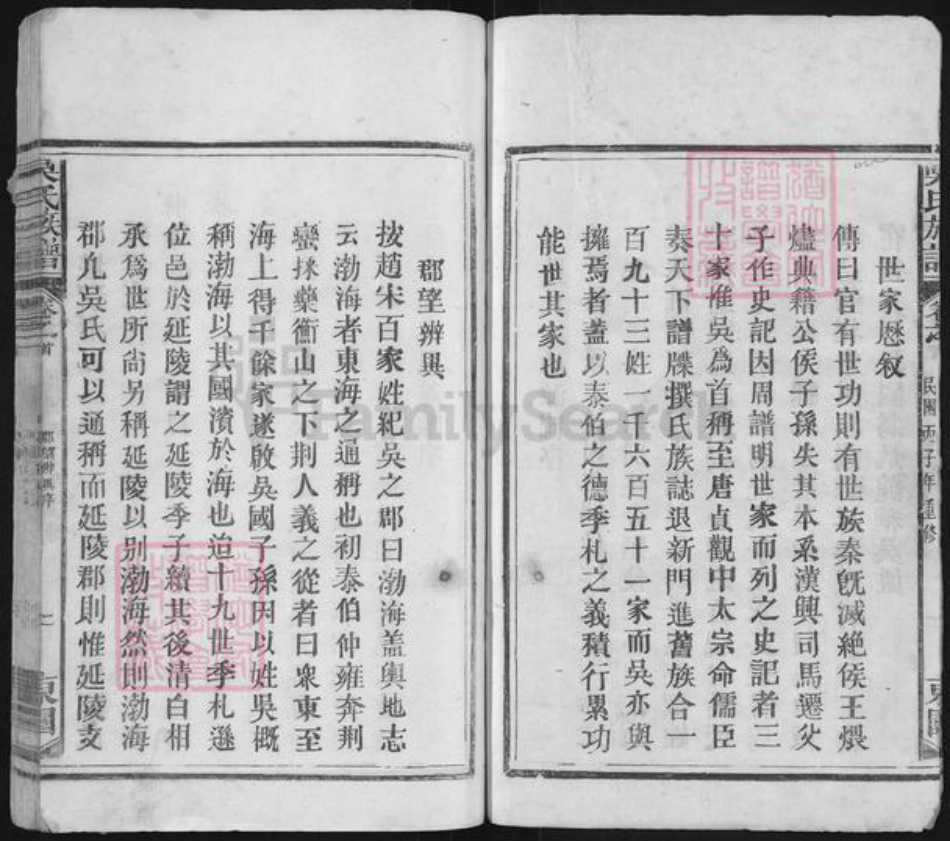 世家歷叙
傳曰官有世功則有世族秦旣滅絶侯王煨
燼典籍公侯子孫失其本系漢興司馬遷父
子作史記因周譜明世家而列之史記者三
十家惟吳爲首稱至唐貞觀中太宗命儒臣
奏天下譜牒撰氏族誌退新門進舊族合一
百九十三姓一千六百五十一家而吳亦與
擁焉者蓋以泰伯之德季札之義積行累功
能世其家也
吳氏族譜
民國丙子年重修
東園
郡望辨異
按趙宋百家姓紀吳之郡曰渤海盖輿地志
云渤海者東海之通稱也初泰伯仲雍奔荆
蠻採藥衡山之下荆人義之從者曰衆東至
海上得千餘家遂啟吳國子孫因以姓吳概
稱渤海以其國濱於海也迨十九世季札遜
位邑於延陵謂之延陵季子續其後清白相
承爲世所尙另稱延陵以别渤海然則渤海
郡凢吳氏可以通稱而延陵郡則惟延陵支
吳氏族譜
卷之首
東園
FamilySearch